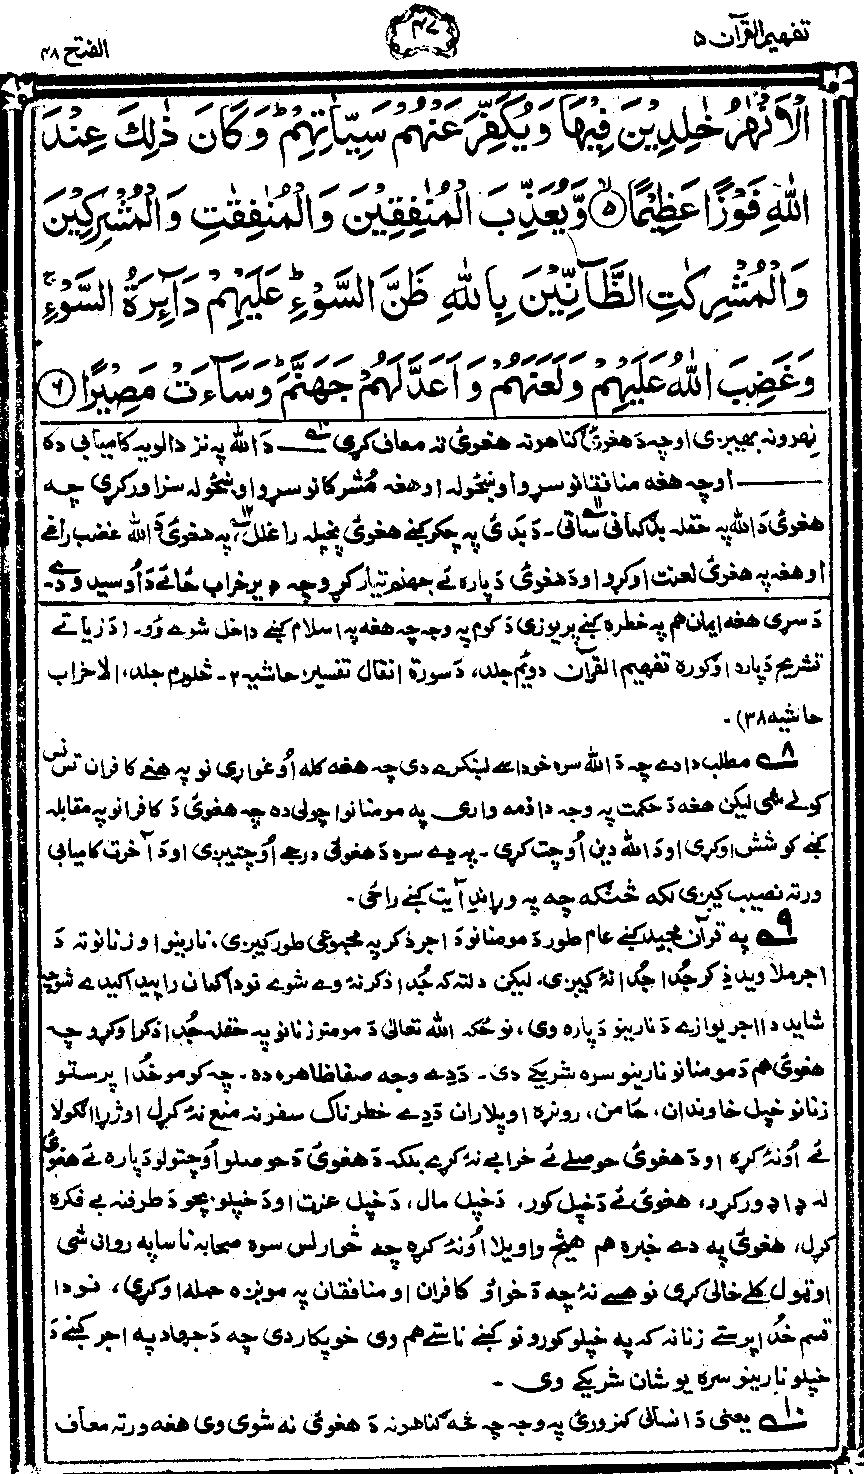 تفهيم القرآن ۵
۴۷
الفتح ۴۸
الْاَنْهٰرُ خٰلِدِيْنَ فِيْهَا وَيُكَفِّرَ عَنْهُمْ سَيِّاٰتِهِمْ ؕ وَكَانَ ذٰلِكَ عِنْدَ
اللّٰهِ فَوْزًا عَظِيْمًا ۙ‏﴿۵﴾ وَّيُعَذِّبَ الْمُنٰفِقِيْنَ وَالْمُنٰفِقٰتِ وَالْمُشْرِكِيْنَ
وَالْمُشْرِكٰتِ الظَّآنِّيْنَ بِاللّٰهِ ظَنَّ السَّوْءِ ؕ عَلَيْهِمْ دَآئِرَةُ السَّوْءِ ۚ
وَغَضِبَ اللّٰهُ عَلَيْهِمْ وَلَعَنَهُمْ وَاَعَدَّ لَهُمْ جَهَنَّمَ ؕ وَسَآءَتْ مَصِيْرًا ﴿۶﴾
نهرونه بهيږي اوچه دَ هغوئ ګناهونه هغوئ ته معاف کړي ۱۰ــ دَ الله په نز دا لويه کاميابي ده
ــــ اوچه هغه منافقانو سړو او ښځوله او هغه مُشرکانو سړو او ښځوله سزا ورکړي چه
هغوئ دَ الله په حقله بدګماني ساتي ۱۱ــ دَ بدئ په چکر کښے هغوئ پخپله راغلل ۱۲ــ، په هغوئ دَ الله غضب راغے
او هغه په هغوئ لعنت اوکړو او دَ هغوئ دَپاره ئے جهنم تيار کړو چه ډير خراب ځائے دَ اوسيدو دے۔
دَ سړي هغه ايمان هم په خطره کښے پريوزي دَ کوم په وجه چه هغه په اسلام کښے داخل شوے وُو۔ (دَ زياتے
تشريح دَپاره اوګوره تفهيم القرآن دويُم جلد، دَ سورة انفال تفسير: حاشيه ۲۔ څلورم جلد، الاحزاب
حاشيه ۳۸)۔
۸ــ مطلب دا دے چه دَ الله سره خو داسے لښکرے دي چه هغه کله اوغواړي نو په هغے کافران تس نس
کولے شي ليکن هغه دَ حکمت په وجه دا ذمه واري په مومنانو اچولې ده چه هغوئ دَ کافرانو په مقابله
کښے کوشش اوکړي او دَ الله دين اوچت کړي۔ په دے سره دَ هغوئ درجے اوچتيږي او دَ آخرت کاميابي
ورته نصيب کيږي لکه څنګه چه په وړاندِ آيت کښے راځي۔
۹ــ په قرآن مجيد کښے عام طور دَ مومنانو دَ اجر ذکر په مجموعي طور کيږي، نارينو او زنانوته دَ
اجر ملاويدو ذِکر جُدا جُدا نۀ کيږي۔ ليکن دلته که جُدا ذکر نۀ وے شوے نو دا ګمان را پيدا کيدے شو چه
شايد دا اجر يوازے دَ نارينو دَپاره وي، نو ځکه الله تعالیٰ دَ مومنو زنانو په حقله جُدا ذکر اوکړو چه
هغوئ هم دَ مومنانو نارينو سره شريکے دي۔ دَ دے وجه صفا ظاهره ده۔ چه کومو خُدا پرستو
زنانو خپل خاوندان، ځامن، روڼره او پلاران دَ دے خطرناک سفر نه منع نۀ کړل او ژړا انګولا
ئے اونۀ کړه او دَ هغوئ حوصلے ئے خرابے نۀ کړے بلکه دَ هغوئ دَ حوصلو اوچتولو دَپاره ئے هغوئ
له ډاډ ورکړو، هغوئ ئے دَ خپل کور، دَ خپل مال، دَ خپل عزت او دَ خپلو بچو دَ طرفنه بے فکره
کړل، هغوئ په دے خبره هم هيڅ واويلا اونۀ کړه چه څوارلس سوه صحابه ناساپه روان شي
او ټول کلے خالي کړي نو هسے نۀ چه دَ خواؤ کافران او منافقان په مونږه حمله اوکړي، نو دا
قسم خُدا پرستے زنانه که په خپلو کورونو کښے ناستے هم وي خو پکار دي چه دَ جهاد په اجر کښے دَ
خپلو نارينو سره يوشان شريکے وي۔
۱۰ــ يعني دَ انساني کمزورئ په وجه چه څه ګناهونه دَ هغوئ نه شوي وي هغه ورته معاف